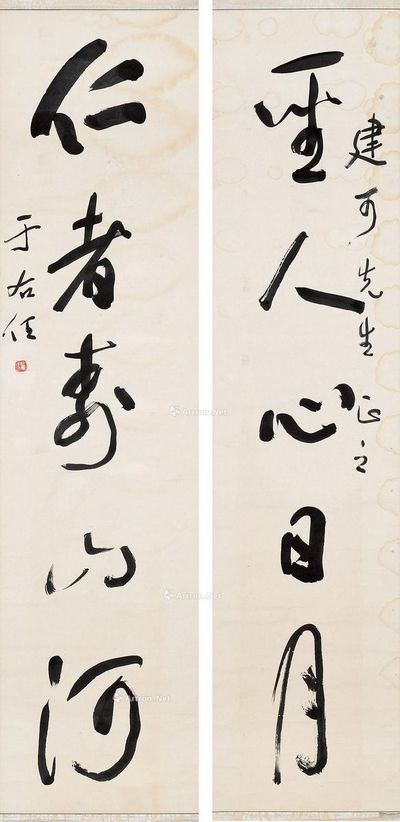 建可先生正之
圣人心日月
仁者寿山河
于右任
Artron.Net
Artron.Net
Artron.Net
Artron.Net